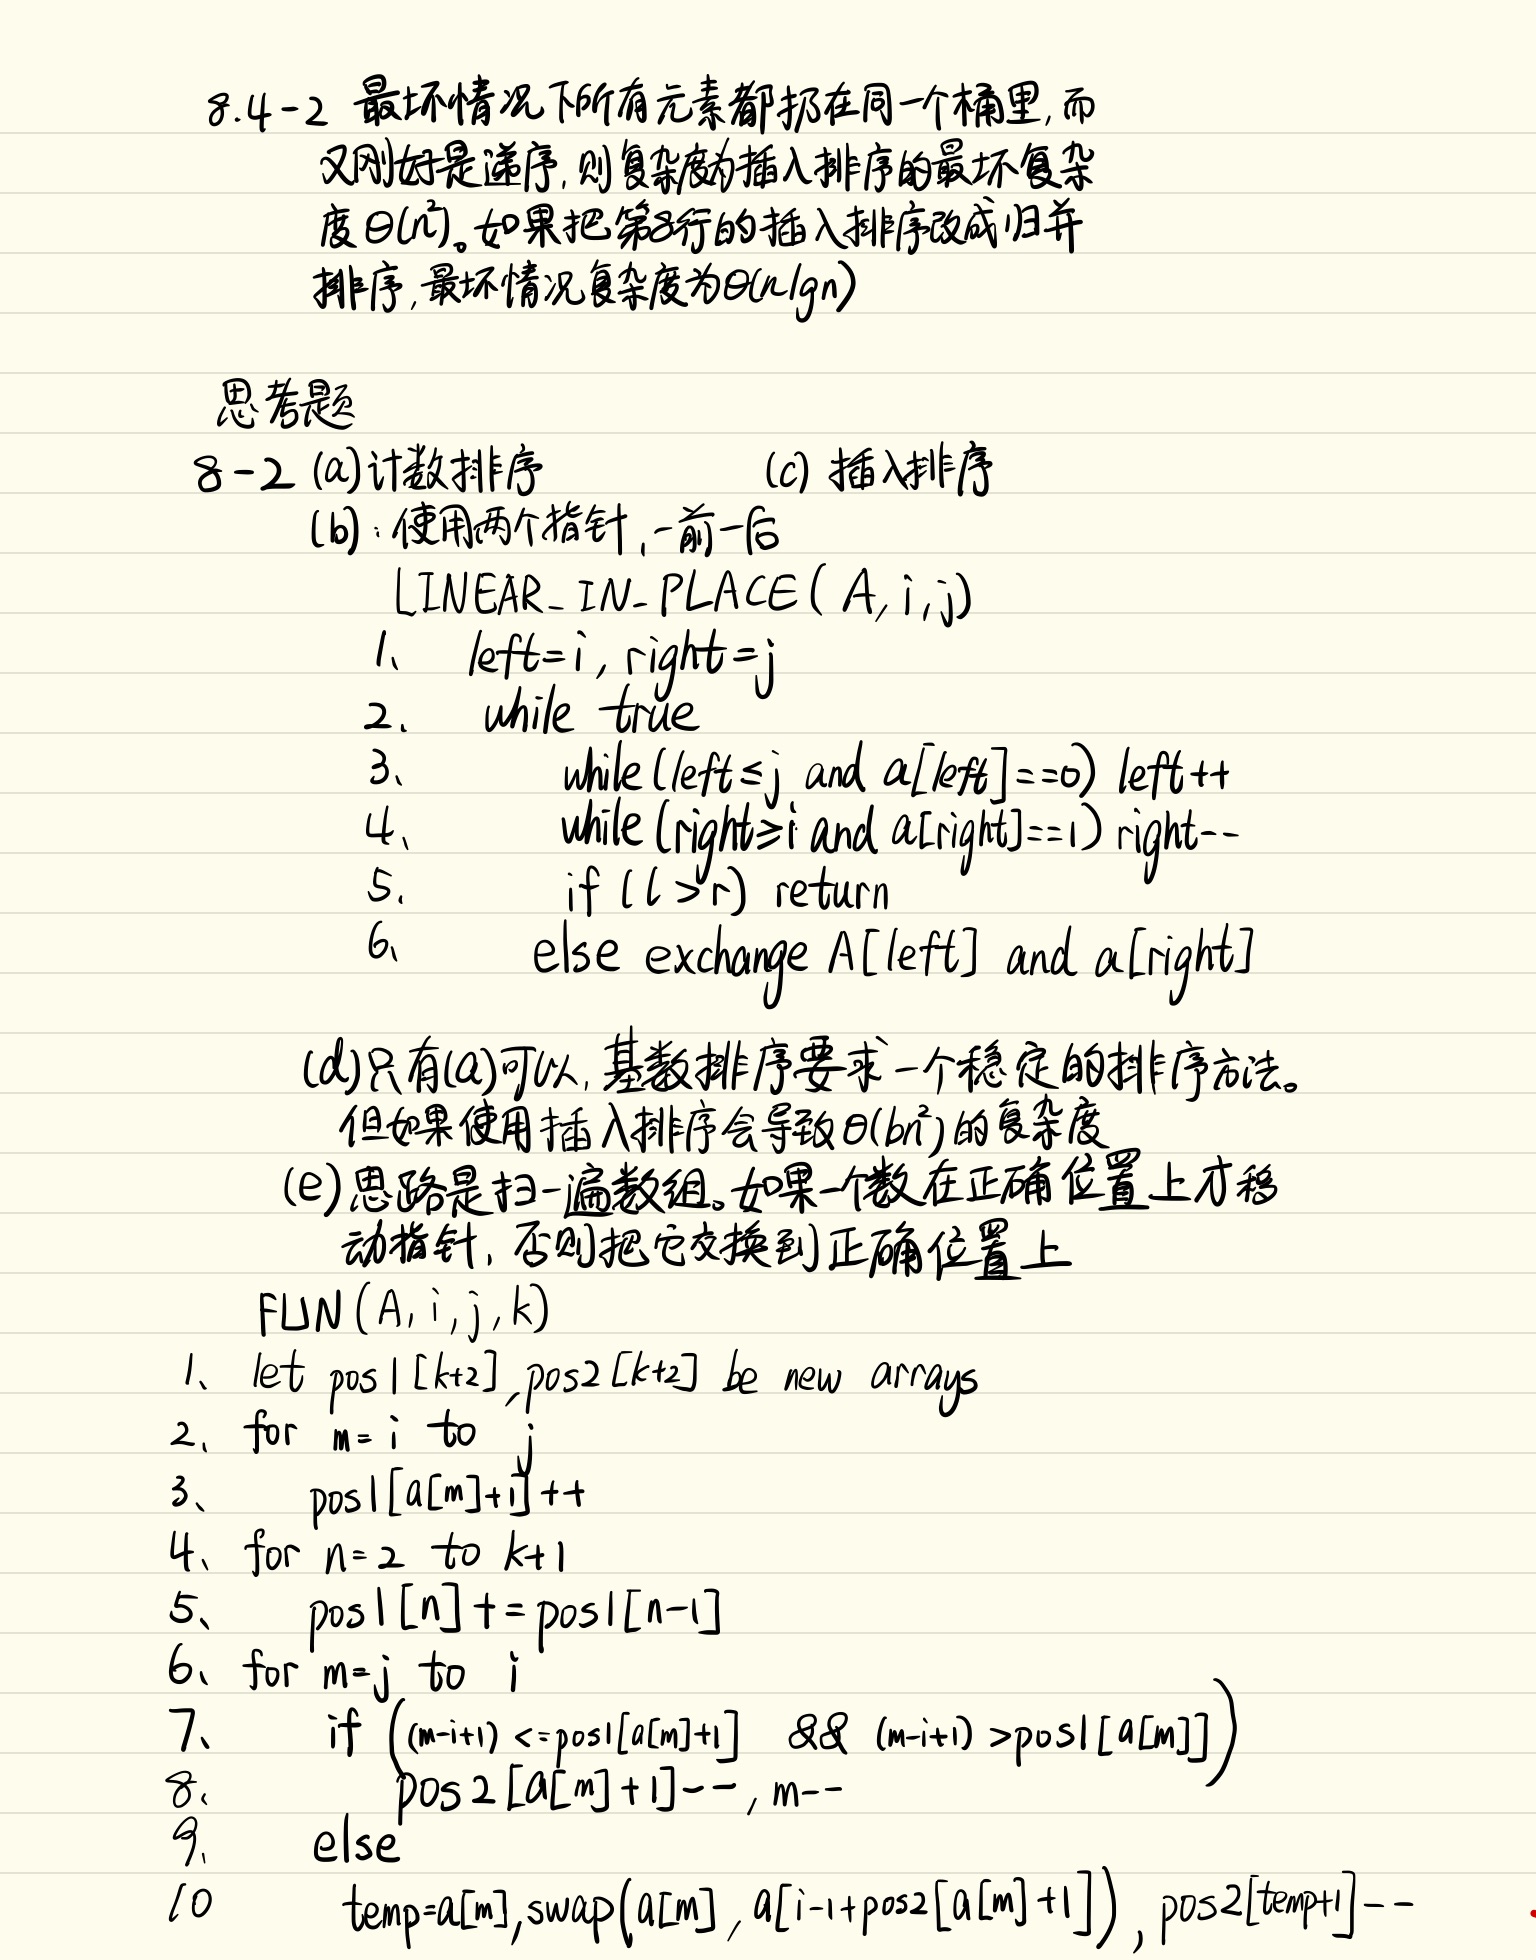 8.4-2 最坏情况下所有元素都扔在同一个桶里,而
又刚好是递序,则复杂度为插入排序的最坏复杂
度Θ(n²)。如果把第8行的插入排序改成归并
排序,最坏情况复杂度为Θ(nlgn)
思考题
8-2 (a)计数排序 (c) 插入排序
(b):使用两个指针,一前一后
LINEAR_IN_PLACE(A,i,j)
1、 left=i, right=j
2、 while true
3、 while(left≤j and a[left]==0) left++
4、 while(right≥i and a[right]==1) right--
5、 if (l>r) return
6、 else exchange A[left] and a[right]
(d)只有(a)可以,基数排序要求一个稳定的排序方法。
但如果使用插入排序会导致Θ(bn²)的复杂度
(e)思路是扫一遍数组。如果一个数在正确位置上才移
动指针,否则把它交换到正确位置上
FUN(A,i,j,k)
1、 let pos1[k+2],pos2[k+2] be new arrays
2、 for m=i to j
3、 pos1[a[m]+1]++
4、 for n=2 to k+1
5、 pos1[n]+=pos1[n-1]
6、 for m=j to i
7、 if ((m-i+1)<=pos1[a[m]+1] && (m-i+1)>pos1[a[m]])
8、 pos2[a[m]+1]--,m--
9、 else
10 temp=a[m],swap(a[m],a[i-1+pos2[a[m]+1]]),pos2[temp+1]--